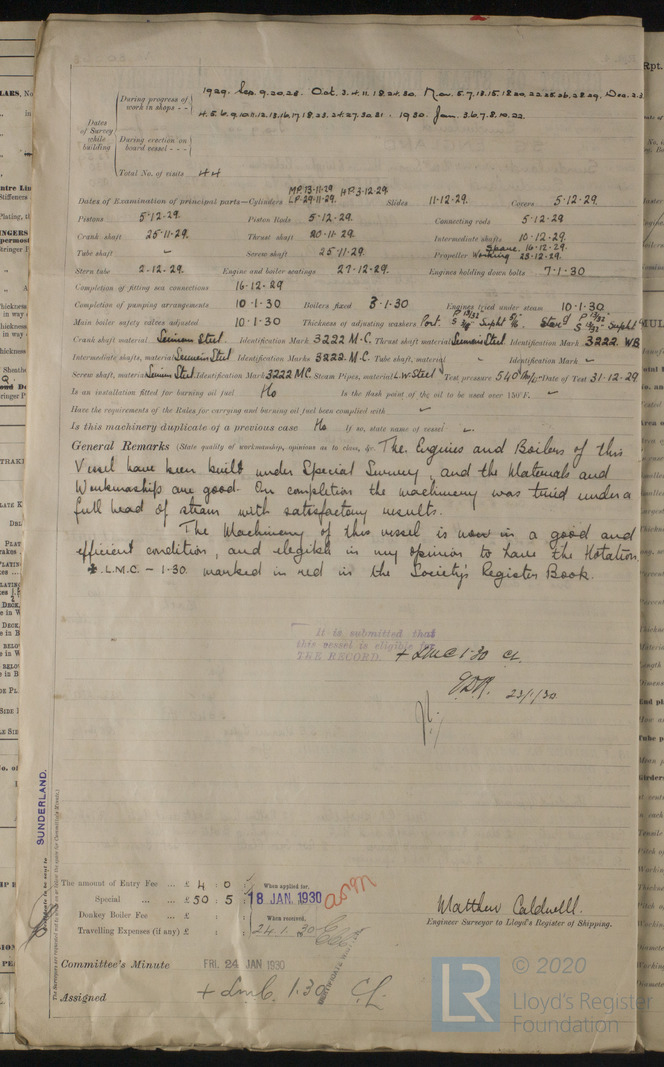 1929. Sep. 9.20.28. Oct. 3.4.11.18.24.30. Nov. 5.7.13.15.18.20.22.25.26.28.29. Dec. 2.3.
During progress of work in shops - -
4.5.6.9.10.11.12.13.16.17.18.23.24.27.30.31. 1930. Jan. 3.6.7.8.10.22.
Dates of Survey while building
During erection on board vessel - - -
Total No. of visits 44
Dates of Examination of principal parts—Cylinders MP.13-11-29 HP.3-12-29. LP.29-11-29. Slides 11-12-29. Covers 5-12-29.
Pistons 5-12-29. Piston Rods 5-12-29. Connecting rods 5-12-29
Crank shaft 25-11-29. Thrust shaft 20-11-29. Intermediate shafts 10-12-29.
Tube shaft – Screw shaft 25-11-29. Propeller Spare. 16-12-29. Working 23-12-29.
Stern tube 2-12-29. Engine and boiler seatings 27-12-29. Engines holding down bolts 7-1-30
Completion of fitting sea connections 16-12-29
Completion of pumping arrangements 10-1-30 Boilers fixed 8-1-30 Engines tried under steam 10-1-30
Main boiler safety valves adjusted 10-1-30 Thickness of adjusting washers Port. P 13/32" S Supht Star'd P 13/32" S 13/32" Supht
Crank shaft material Siemens Steel. Identification Mark 3222 M.C. Thrust shaft material Siemens Steel Identification Mark 3222. WB
Intermediate shafts, material Siemens Steel Identification Marks 3222. M.C. Tube shaft, material " Identification Mark –
Screw shaft, material Siemens Steel Identification Mark 3222 MC. Steam Pipes, material L.W. Steel Test pressure 540 lbs/□" Date of Test 31-12-29
Is an installation fitted for burning oil fuel No Is the flash point of the oil to be used over 150°F. –
Have the requirements of the Rules for carrying and burning oil fuel been complied with –
Is this machinery duplicate of a previous case No If so, state name of vessel –
General Remarks (State quality of workmanship, opinions as to class, &c. The Engines and Boilers of this
Vessel have been built under Special Survey, and the Materials and
Workmanship are good. On completion the machinery was tried under a
full head of steam with satisfactory results.
The Machinery of this vessel is now in a good and
efficient condition, and eligible in my opinion to have the Notation.
✠. L.M.C – 1-30. marked in red in the Society's Register Book.
It is submitted that
this vessel is eligible for
THE RECORD. + LMC 1-30 CL.
23/1/30
SUNDERLAND.
The amount of Entry Fee ... £ 4 : 0 : When applied for,
Special ... £ 50 : 5 : 18 JAN. 1930
Donkey Boiler Fee ... £ : : When received,
Travelling Expenses (if any) £ : : 24.1.30
Matthew Caldwell.
Engineer Surveyor to Lloyd's Register of Shipping.
Committee's Minute FRI. 24 JAN 1930
Assigned + LMC. 1.30 CL.
LR © 2020
Lloyd's Register
Foundation